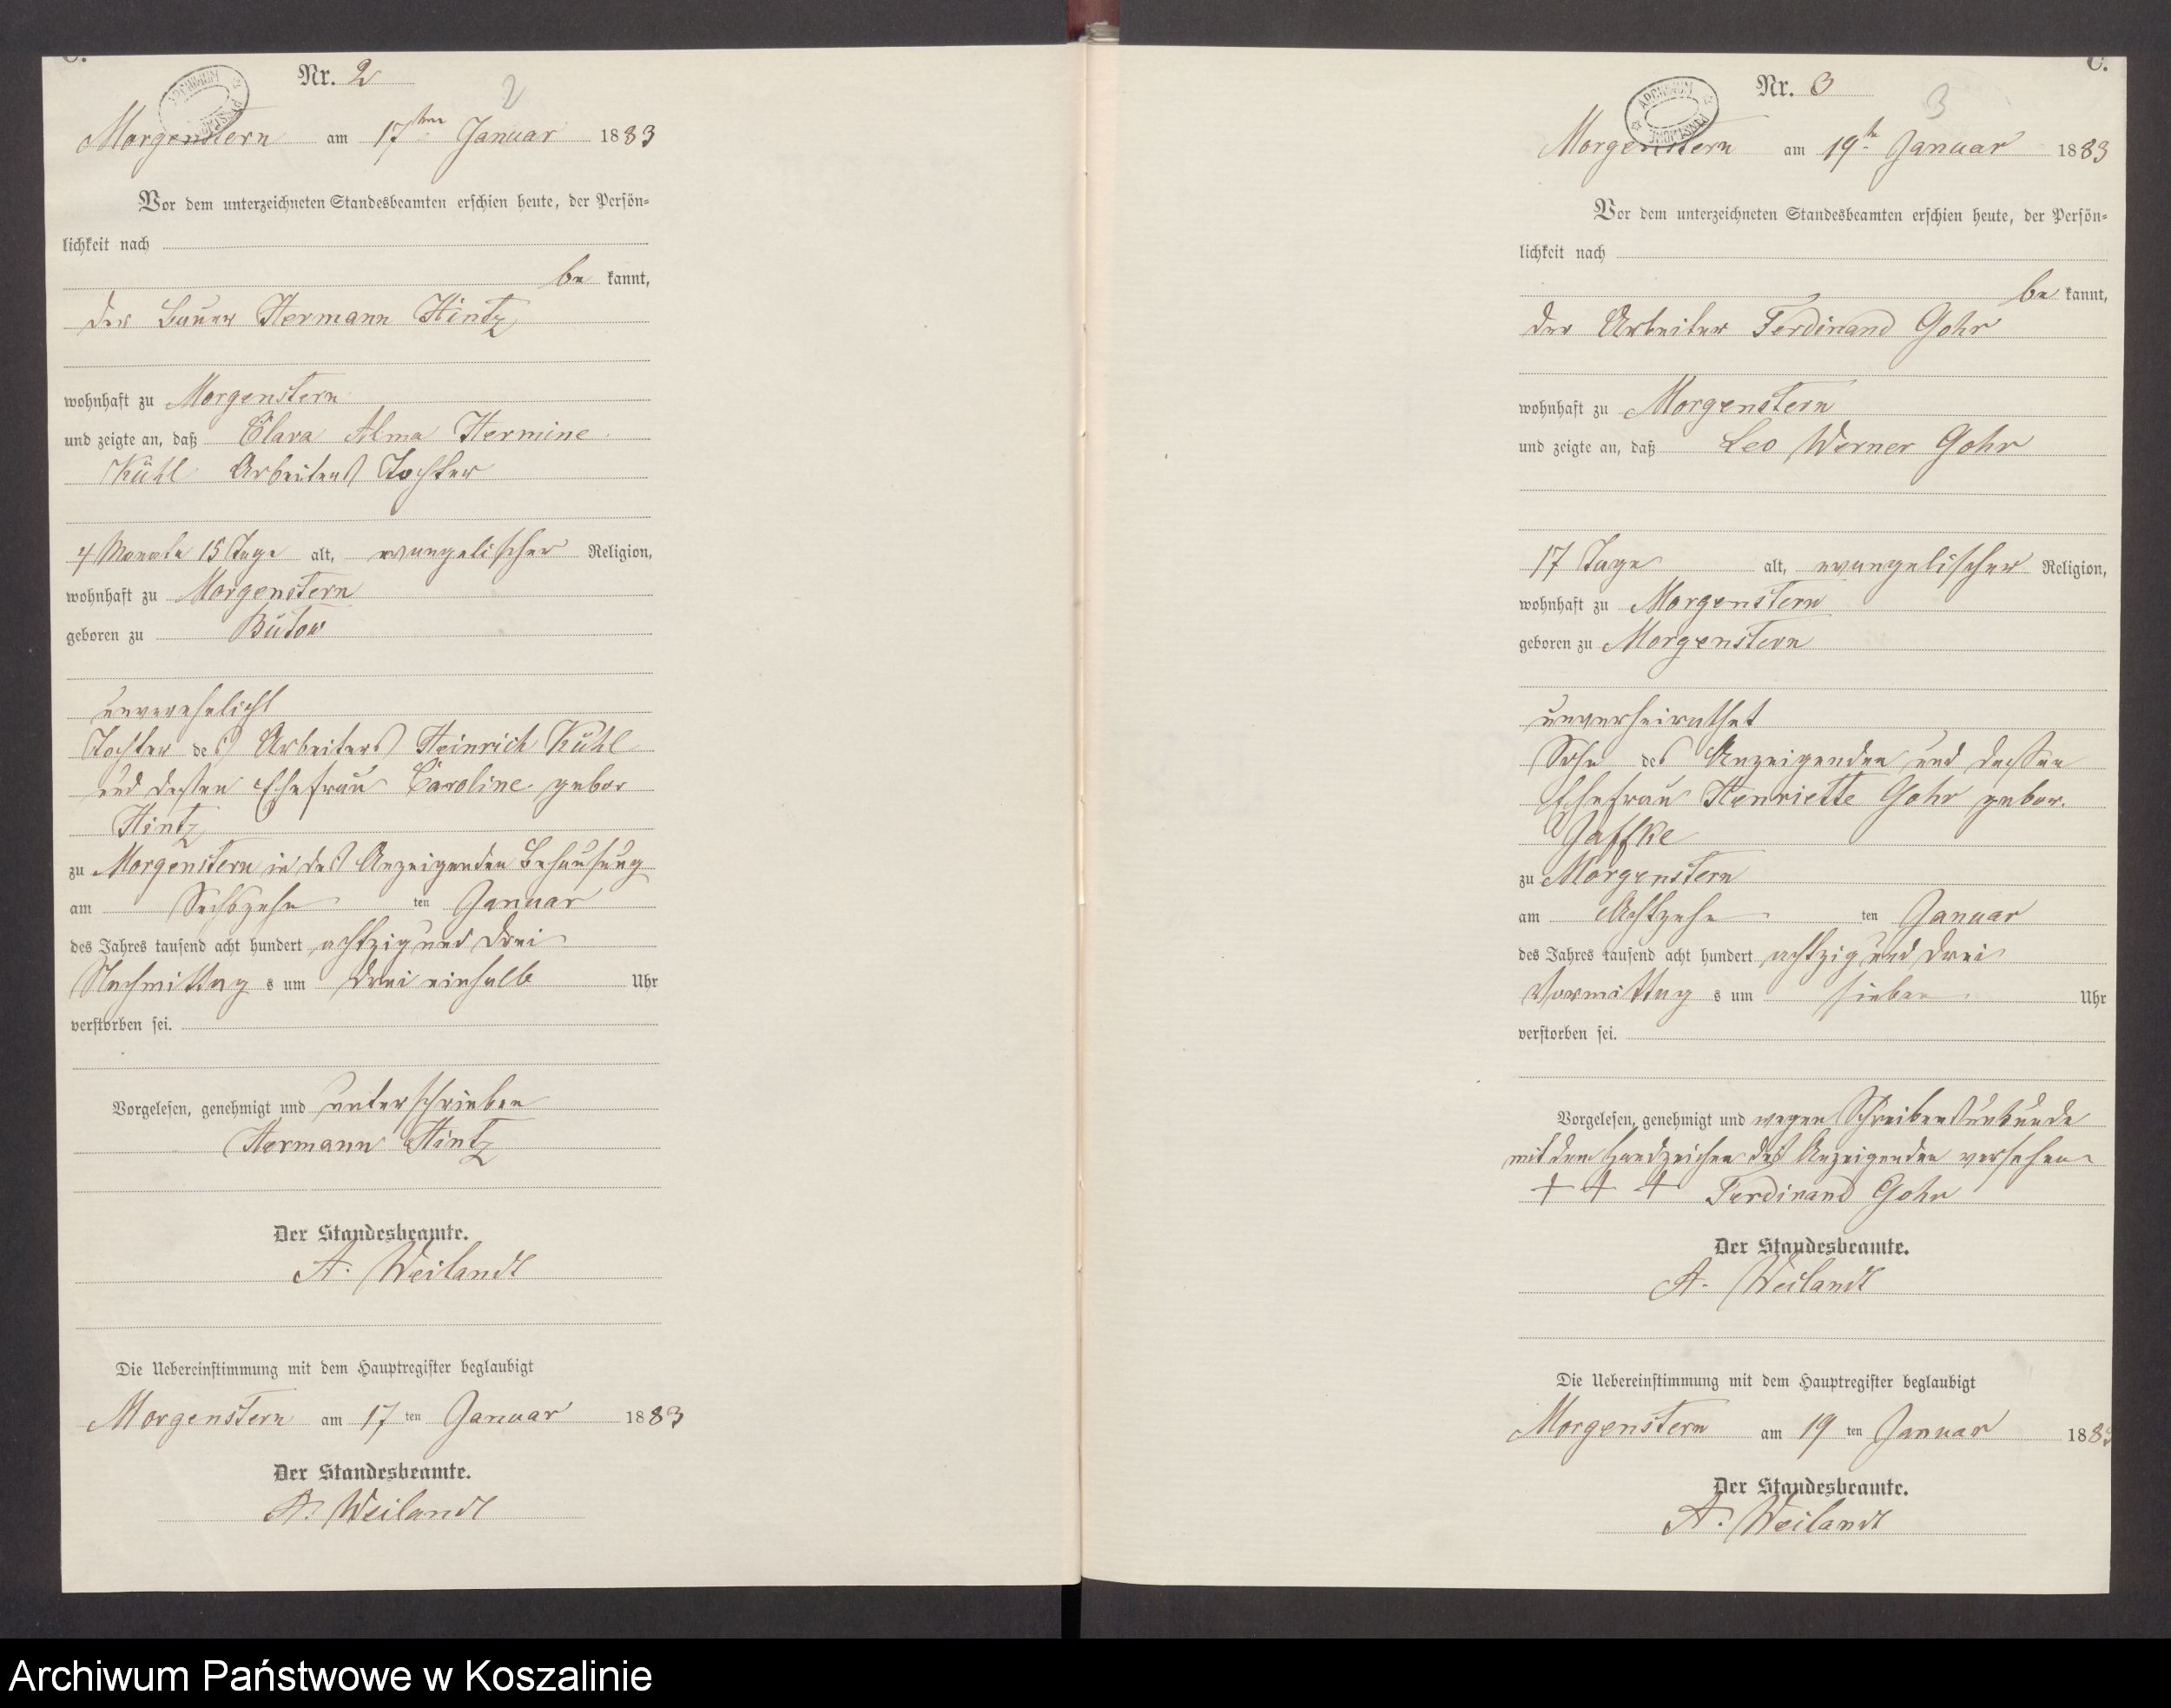 C.
Nr. 2
2
Morgenstern am 17ten Januar 1883
Vor dem unterzeichneten Standesbeamten erschien heute, der Persön-
lichkeit nach
be kannt,
der Bauer Hermann Hintz
wohnhaft zu Morgenstern
und zeigte an, daß Clara Alma Hermine
Kühl Arbeiters Tochter
4 Monate 15 Tage alt, evangelischer Religion,
wohnhaft zu Morgenstern
geboren zu Bütow
unverehelicht
Tochter des Arbeiters Heinrich Kühl
und dessen Ehefrau Caroline gebor
Hintz
zu Morgenstern in des Anzeigenden Behausung
am Sechszehn ten Januar
des Jahres tausend acht hundert achtzig und drei
Nachmittag s um drei einhalb Uhr
verstorben sei.
Vorgelesen, genehmigt und unterschrieben
Hermann Hintz
Der Standesbeamte.
A. Weilandt
Die Uebereinstimmung mit dem Hauptregister beglaubigt
Morgenstern am 17 ten Januar 1883
Der Standesbeamte.
A. Weilandt
C.
Nr. 3
3
ARCHIWUM
Morgenstern am 19te Januar 1883
Vor dem unterzeichneten Standesbeamten erschien heute, der Persön-
lichkeit nach
be kannt,
der Arbeiter Ferdinand Gohr
wohnhaft zu Morgenstern
und zeigte an, daß Leo Werner Gohr
17 Tage alt, evangelischer Religion,
wohnhaft zu Morgenstern
geboren zu Morgenstern
unverheirathet
Sohn des Anzeigenden und dessen
Ehefrau Henriette Gohr gebor.
Jaffke
zu Morgenstern
am Achtzehn ten Januar
des Jahres tausend acht hundert achtzig und drei
Vormittag s um sieben Uhr
verstorben sei.
Vorgelesen, genehmigt und wegen Schreibensunkunde
mit dem Handzeichen des Anzeigenden versehen
+ + + Ferdinand Gohr
Der Standesbeamte.
A. Weilandt
Die Uebereinstimmung mit dem Hauptregister beglaubigt
Morgenstern am 19 ten Januar 1883
Der Standesbeamte.
A. Weilandt
Archiwum Państwowe w Koszalinie